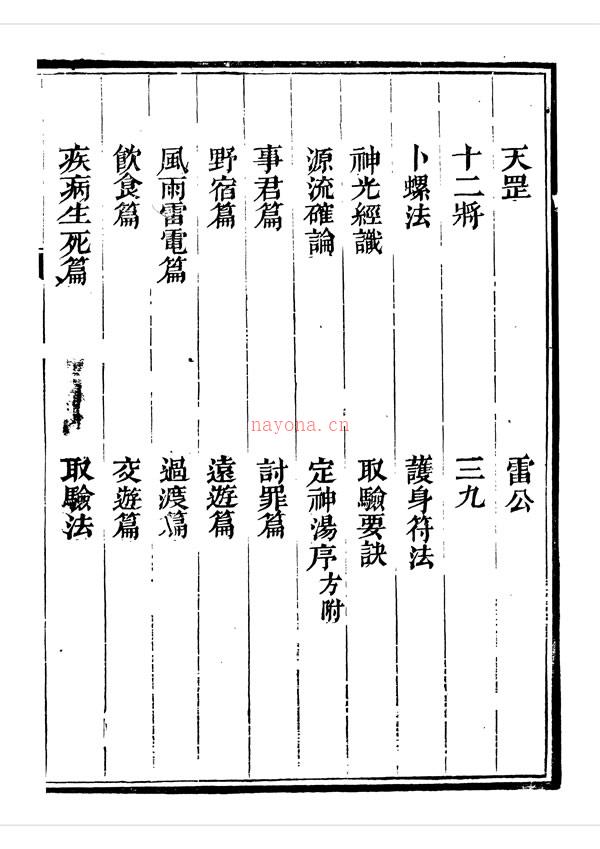 天罡 雷公
十二將 三九
卜螺法 護身符法
神光經讖 取驗要訣
源流確論 定神湯序方附
事君篇 討罪篇
野宿篇 遠遊篇
風雨雷電篇 過渡篇
飲食篇 交遊篇
疾病生死篇 取驗法
nayona.cn